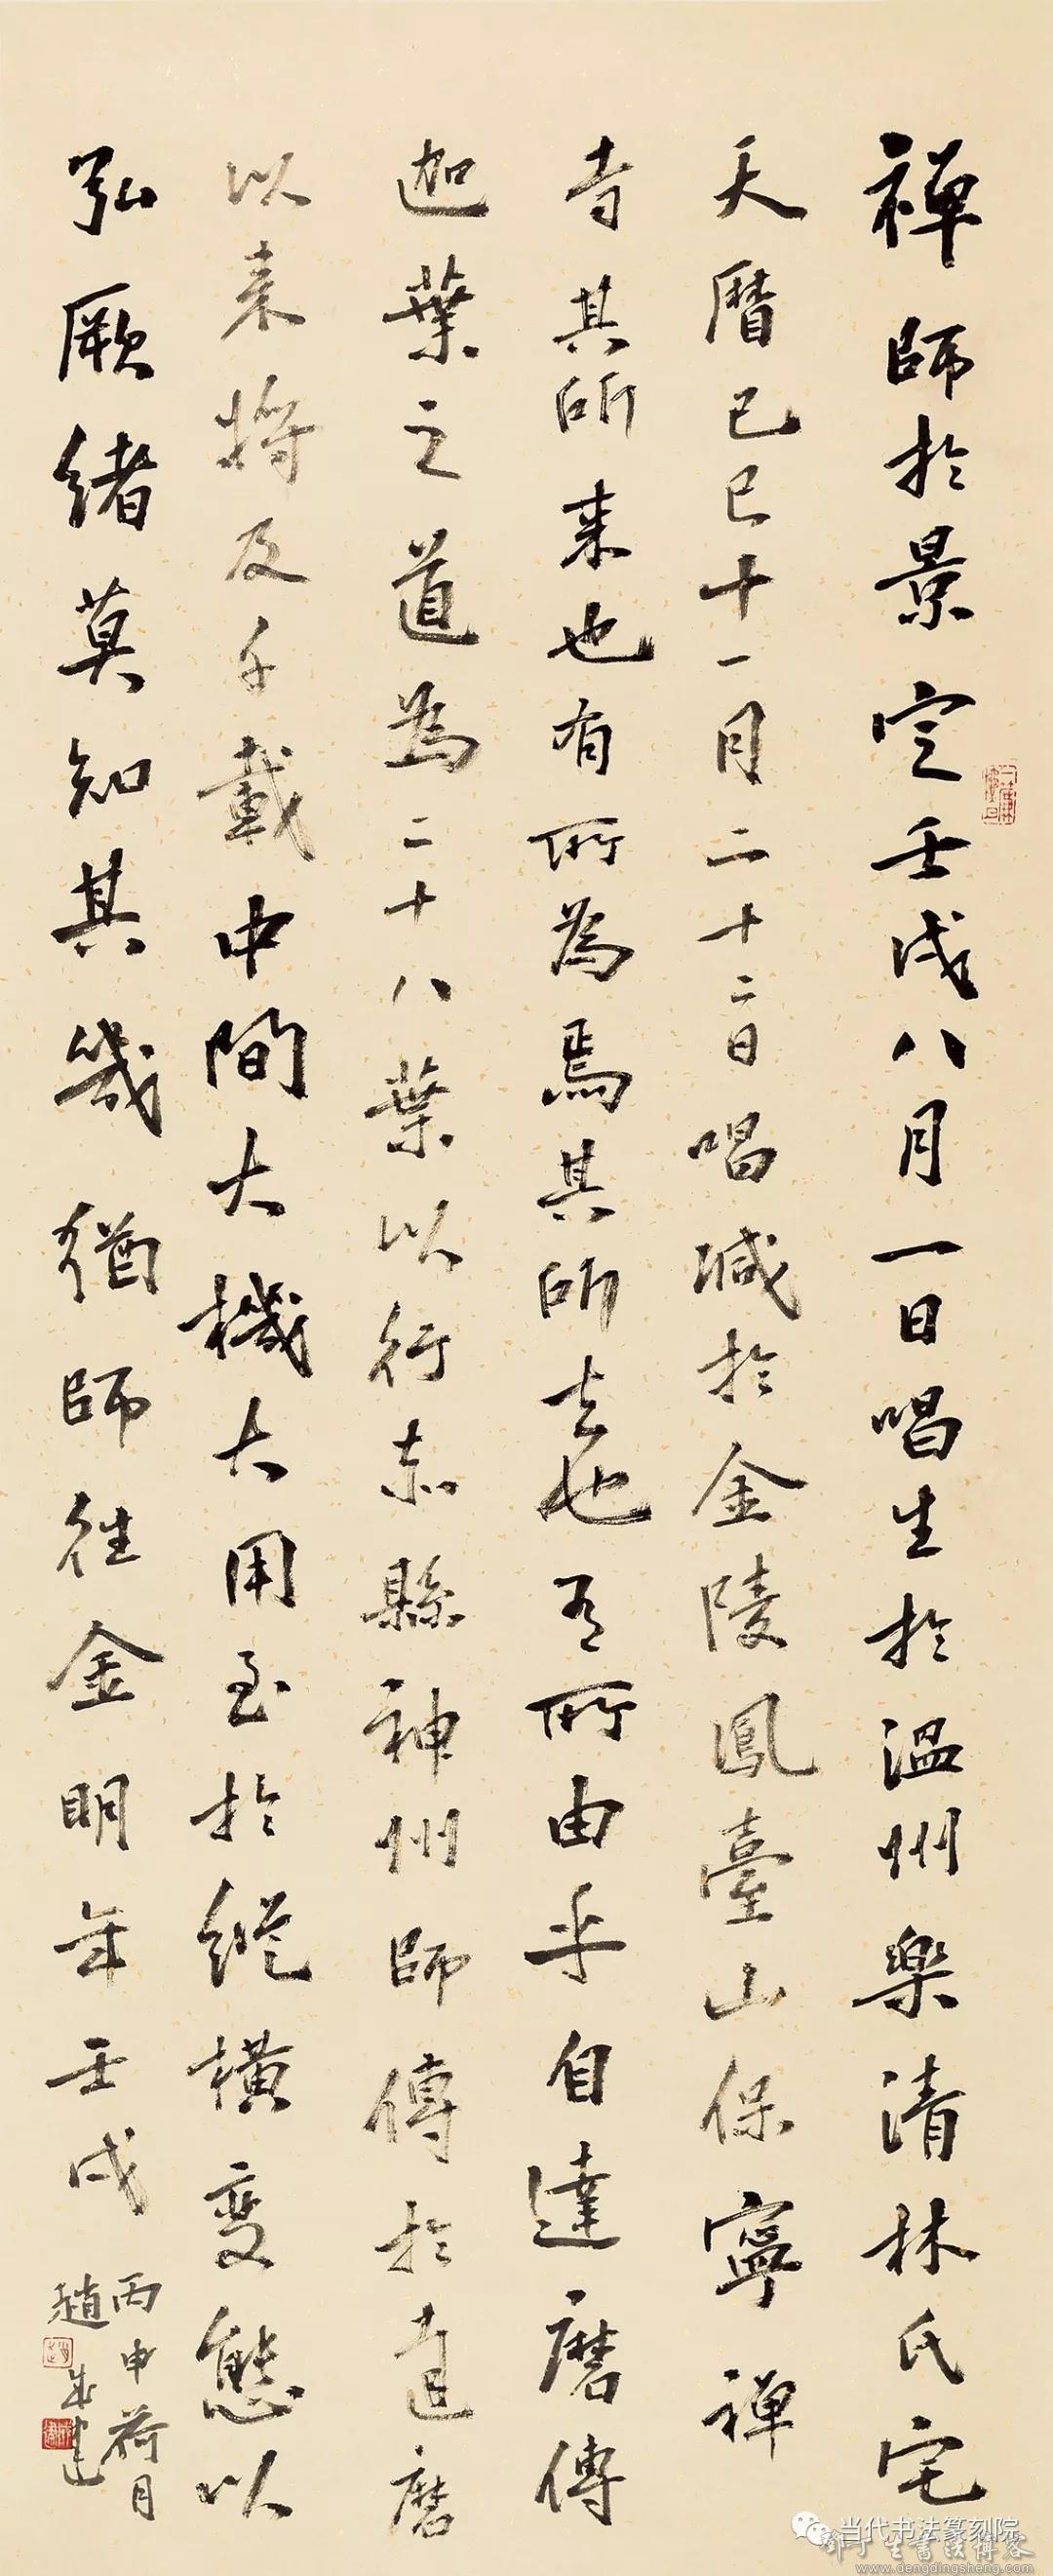 禪師於景定壬戌八月一日唱生於溫州樂清林氏宅
天曆己巳十一月二十二日唱滅於金陵鳳臺山保寧禪
寺其所来也有所為焉其所去也有所由乎自達磨傳
迦葉之道為二十八葉以行赤縣神州師傳於達磨
以来將及千載中間大機大用至於縱橫变態以
弘厥緒莫知其幾猶師往金明年壬戌
丙申荷月
趙
当代书法篆刻院
www.dengdingsheng.com